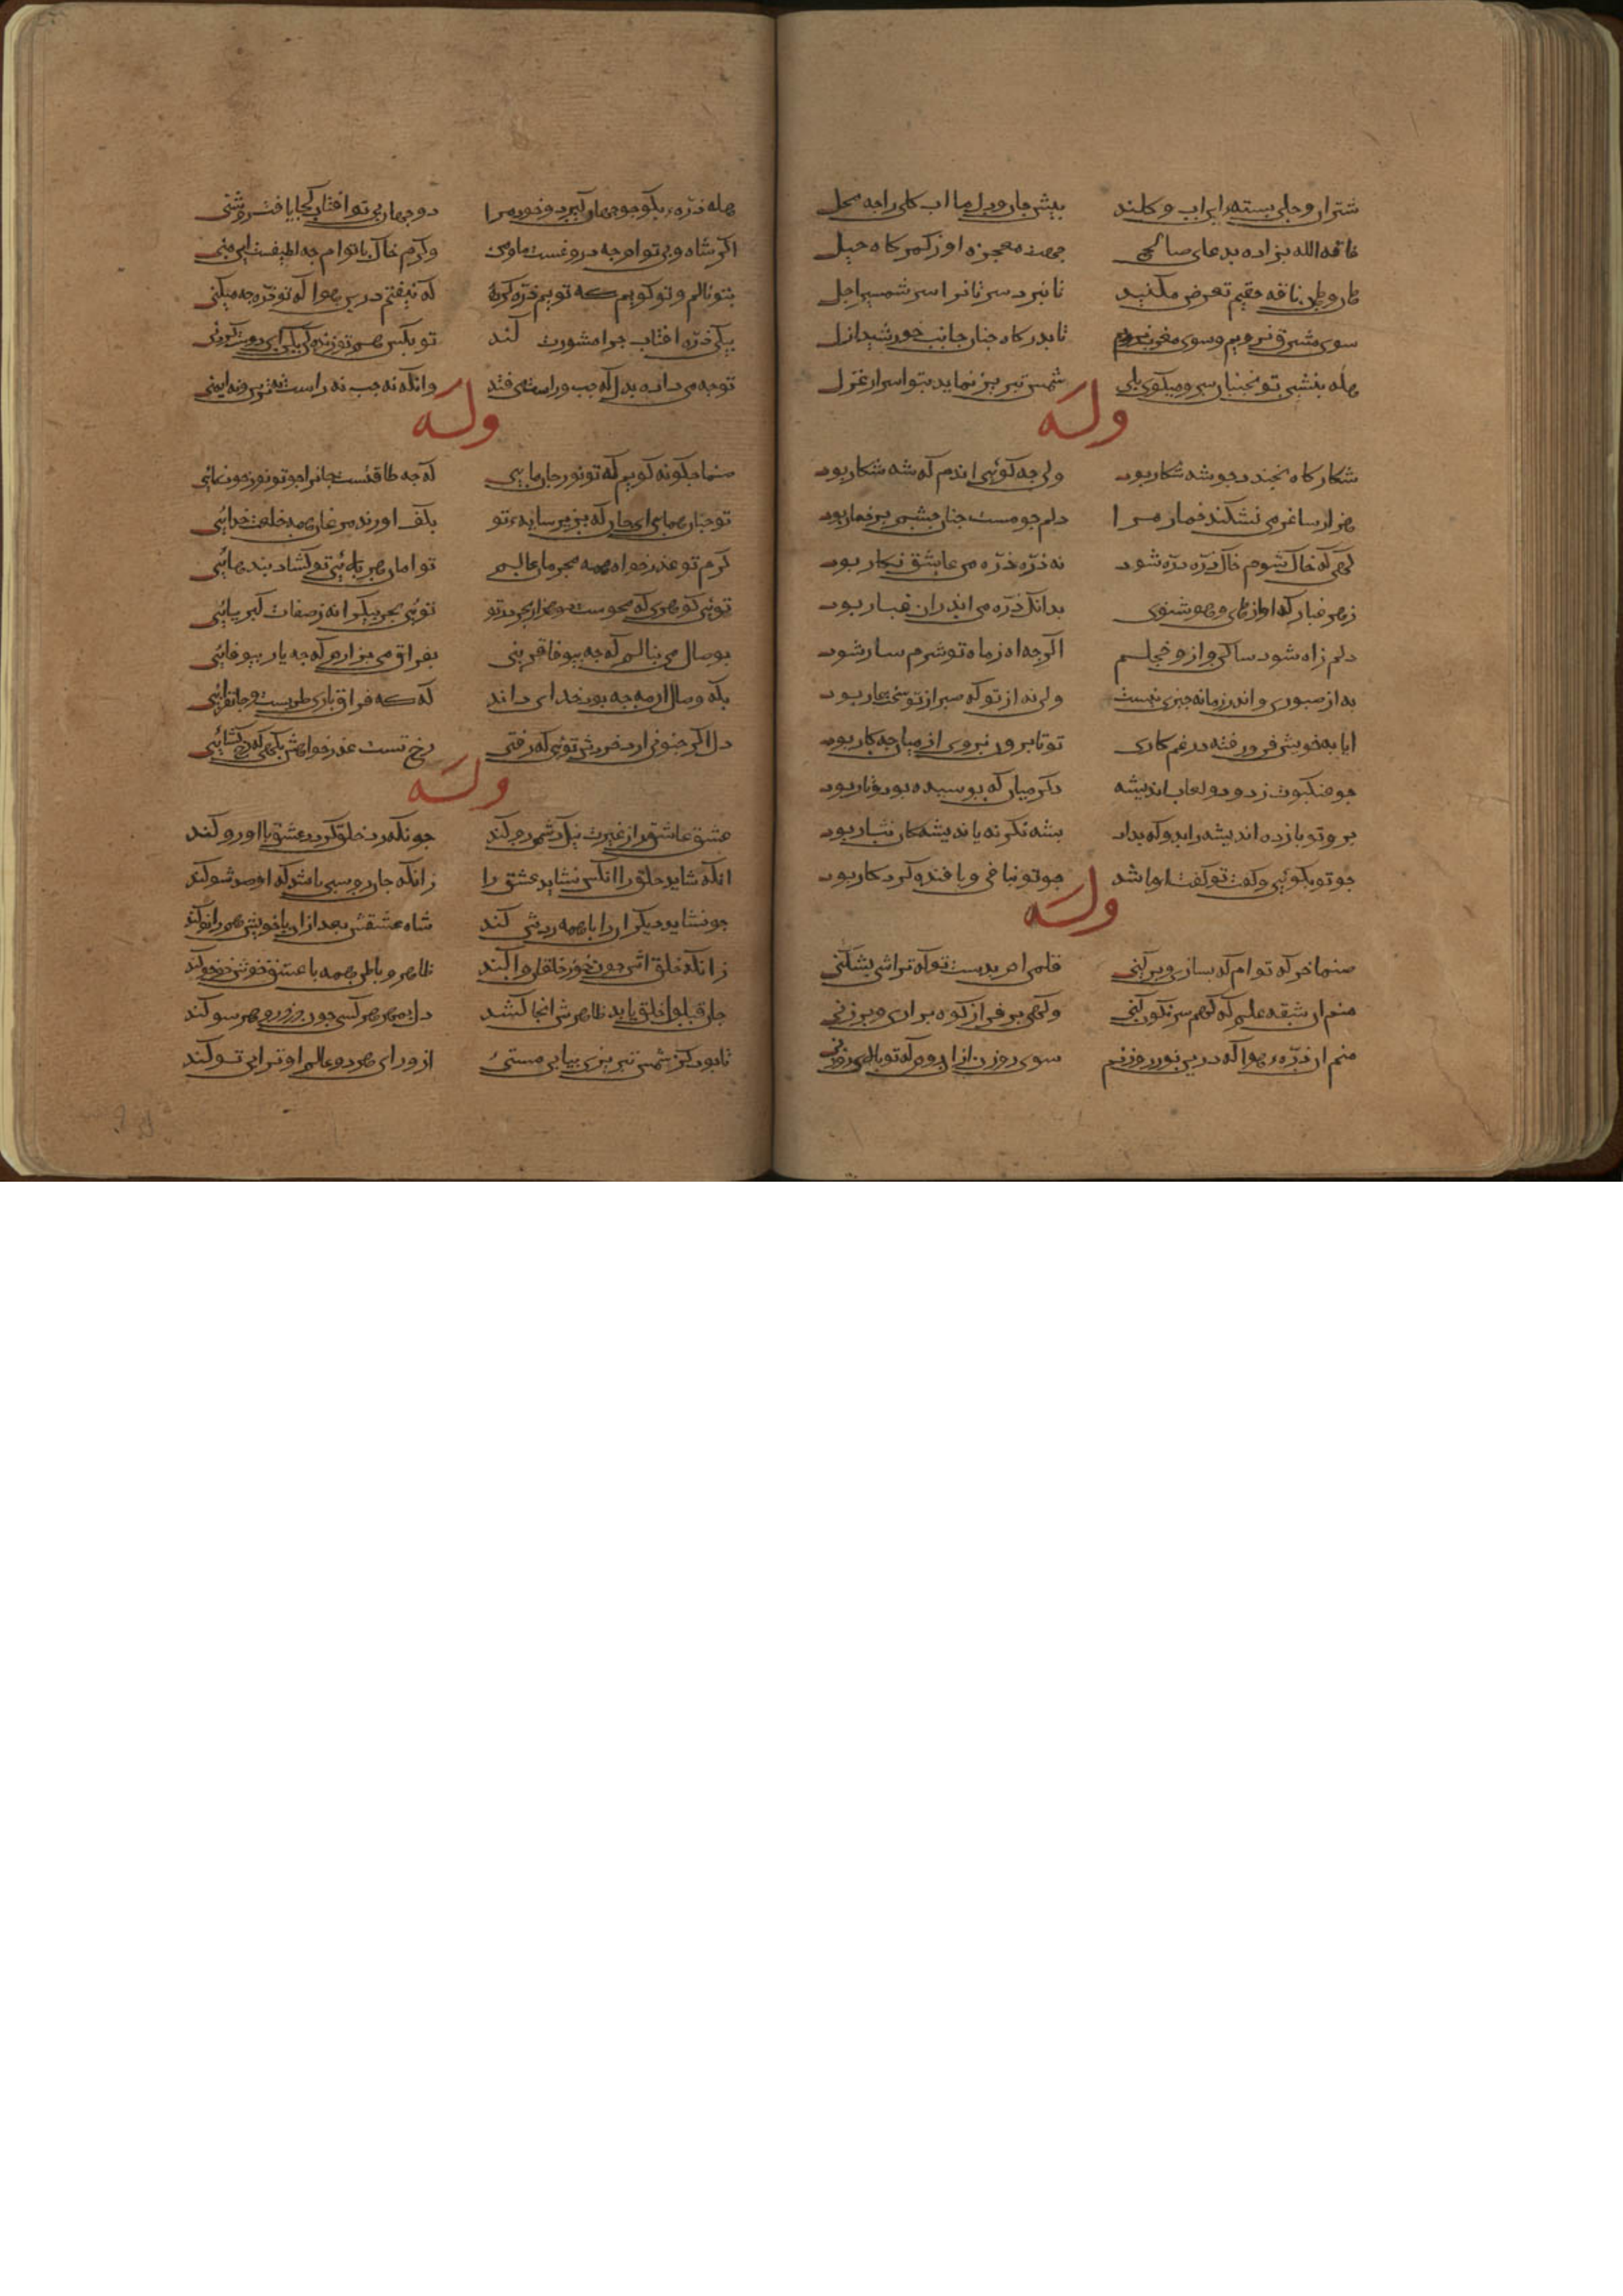 شتران وحلی بسته این اب و کلند پیش جان و دل ما اب کلی راجه محل
ناقة الله بزاده بدعای صالح جهت معجزه او ز کمر کاه جبل
هان و هان ناقه حقیم تعرض مکنید تا نبرد سرتانرا سر شمشیر اجل
سوی مشرق نرویم و سوی مغرب نرویم تا ابد کام زنان جانب خورشید ازل
هله بنشین تو بجنبان سر و میکوی بلی شمس تبریز نماید بتو اسرار غزل
وله
شکار کاه بخندد جو شه شکار رود ولی جه کوئی اندم که شه شکار بود
هزار ساغر می نشکند خمار مرا دلم جو مست جنان جشم پر خمار بود
کهی که خاک شوم خاک ذره ذره شود نه ذره ذره من عاشق نکار بود
ز هر غبار که اواز های و هو شنوی بدانک ذره من اندران غبار بود
دلم ز اه شود ساکن و ازو خجلم اکر جه اه ز ماه تو شرمسار شود
به از صبوری و اندر زمانه جیزی نیست ولی نه از تو که صبر از تو سخت عار بود
ایا به خویش فرو رفته در غم کاری تو تا برون نروی از میان جه کار بود
جو عنکبوت ز دود لعاب اندیشه دکر مباف که بوسیده بود و تار بود
برو تو باز ده اندیشه را بدو که بداد بشه نکر نه باندیشه کان نثار بود
جو تو بکوئی و کفت تو کفت او باشد جو تو نبافی و بافنده کردکار بود
وله
صنما خر که توام که بسازی و بر کنی قلمی ام بدست تو که تراشی بشکنی
منم ان شقه علم که کهم سرنکون کنی و کهی بر فراز کوه بر اری و بر زنی
منم ان ذره هوا که درین نور روزنم سوی روزن ازان روم که تو بالای روزنی
هله ذره بکو جو جهان کیرد و خورد مرا دو جهان بی تو افتاب کجا یافت روشنی
اکر شاه و بی توام جه دروغست ما و من و کرم خاک باتوام جه لطیفت این منی
بتو نالم و تو کویم که تویم ذره کرده که نیفتم درین هوا که تو ذره جه میکنی
بیکی ذره افتاب جرا مشورت کند تو بکش هم تو زنده کن بکن ای دوست کردنی
توجه می داده بدل که جب و راست می فتد وانکه نه جب نه راست نه ترس و نه ایمنی
وله
صنما جکونه کویم که تو نور جان مایی که جه طاقتست جانرا جو تو نور خود نمایی
تو جنان همای ای جان که بزیر سایه تو بکف اورند مرغان همه خلعت خدایی
کرم تو عذر خواه همه مجرمان عالم تو امان هر بلائی تو کشاد بندهایی
توئی کوهری که محوست دو هزار بحر در تو توئی بحر بیکرانه ز صفات کبریایی
بوصال می بنالم که جه بیوفا قرینی بفراق می بزارم که جه یار بیوفایی
بکه وصال ان مه جه بود خدای داند که که فراق باری طربست و جانفزایی
دل اکر جنون ارد خردش توئی که رفتی رخ تست عذر خواهش بکهی که رخ کشایی
وله
عشق عاشق را ز غیرت نیک دشمن رو کند جونکه رد خلق کردد عشق با او رو کند
انکه شاید خلق را انکس نشاید عشق را زانکه جان روسبی باشد که او صد شو کند
جو نشاید دیکرانرا با همه ردش کند شاه عشقش بعد ازان با خویش هم زانو کند
زانکه خلق اش جون براند خوز خلقان وا کند ظاهر و باطن همه با عشق خوش خو خو کند
جان قبول خلق یابد ظاهرش انجا کشد دل بمهر هر کسی جون دزد رو هر سو کند
تا بود کز شمس تبریزی بیابی مستئ از ورای هر دو عالم او ترا بی تو کند